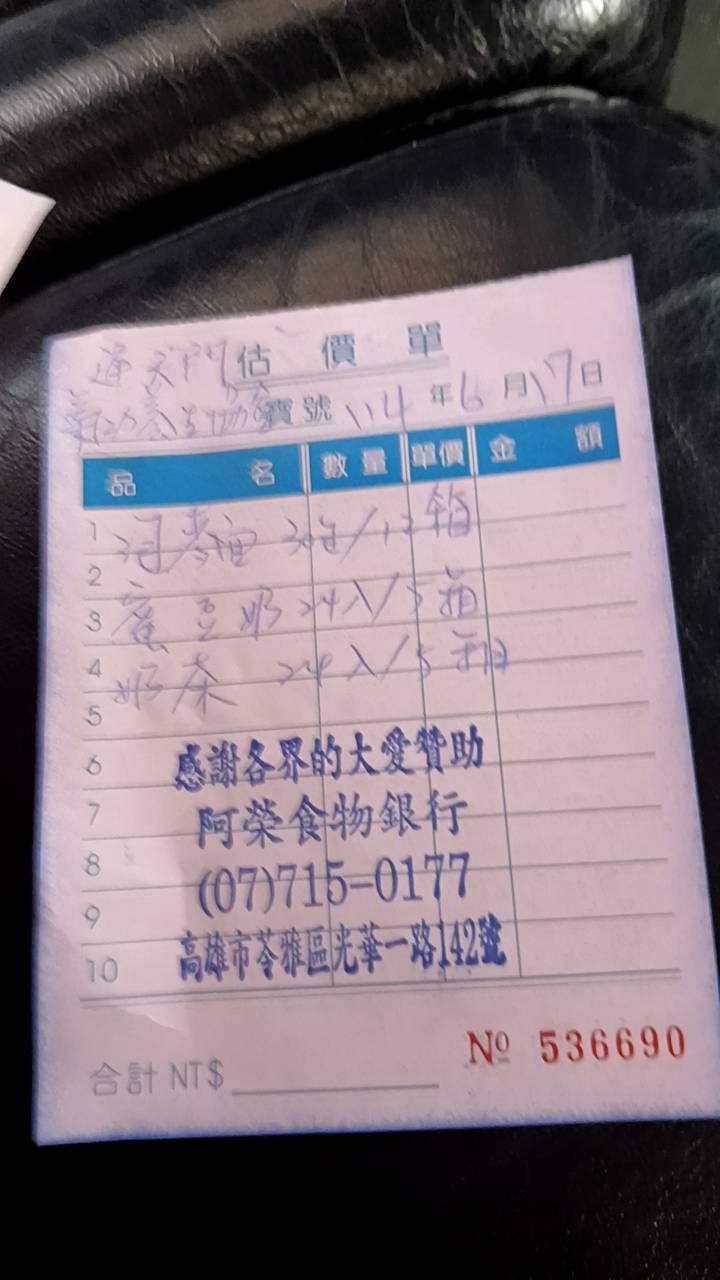 通天門 估價單
氣功養生協會 寶號 114年6月17日
品名 數量 單價 金額
1
2 30包/12箱
3 蜜豆奶 24入/5箱
4
5 奶茶 24入/5箱
6 感謝各界的大愛贊助
7 阿榮食物銀行
8 (07)715-0177
9
10 高雄市苓雅區光華一路142號
Nº 536690
合計 NT$